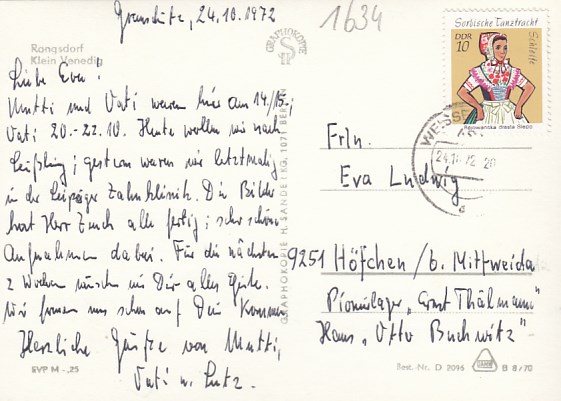 Granschütz, 24.10.1972
1634
Rangsdorf
Klein Venedig
Liebe Eva!
Mutti und Vati waren hier am 14./15.;
Vati 20.-22.10. Heute wollen wir nach
Leißling; gestern waren wir letztmalig
in der Leipziger Zahnklinik. Die Bilder
hat Herr alle fertig; sehr schöne
Aufnahmen dabei. Für die nächsten
2 Wochen wünschen wir Dir alles Gute.
Wir freuen uns schon auf Dein Kommen
Herzliche Grüße von Mutti,
Vati u. Lutz.
EVP M -,25
GRAPHOKOPIE
GRAPHOKOPIE H. SANDER KG, 1071 BERLIN
Sorbische Tanztracht
DDR
10
Schleife
Rejowanska drasta Slepo
24.10.72-20
Frln.
Eva Ludwig
9251 Höfchen /b. Mittweida
Pionierlager „Ernst Thälmann"
Haus „Otto Buchwitz"
Best.-Nr. D 2096
B 8/70